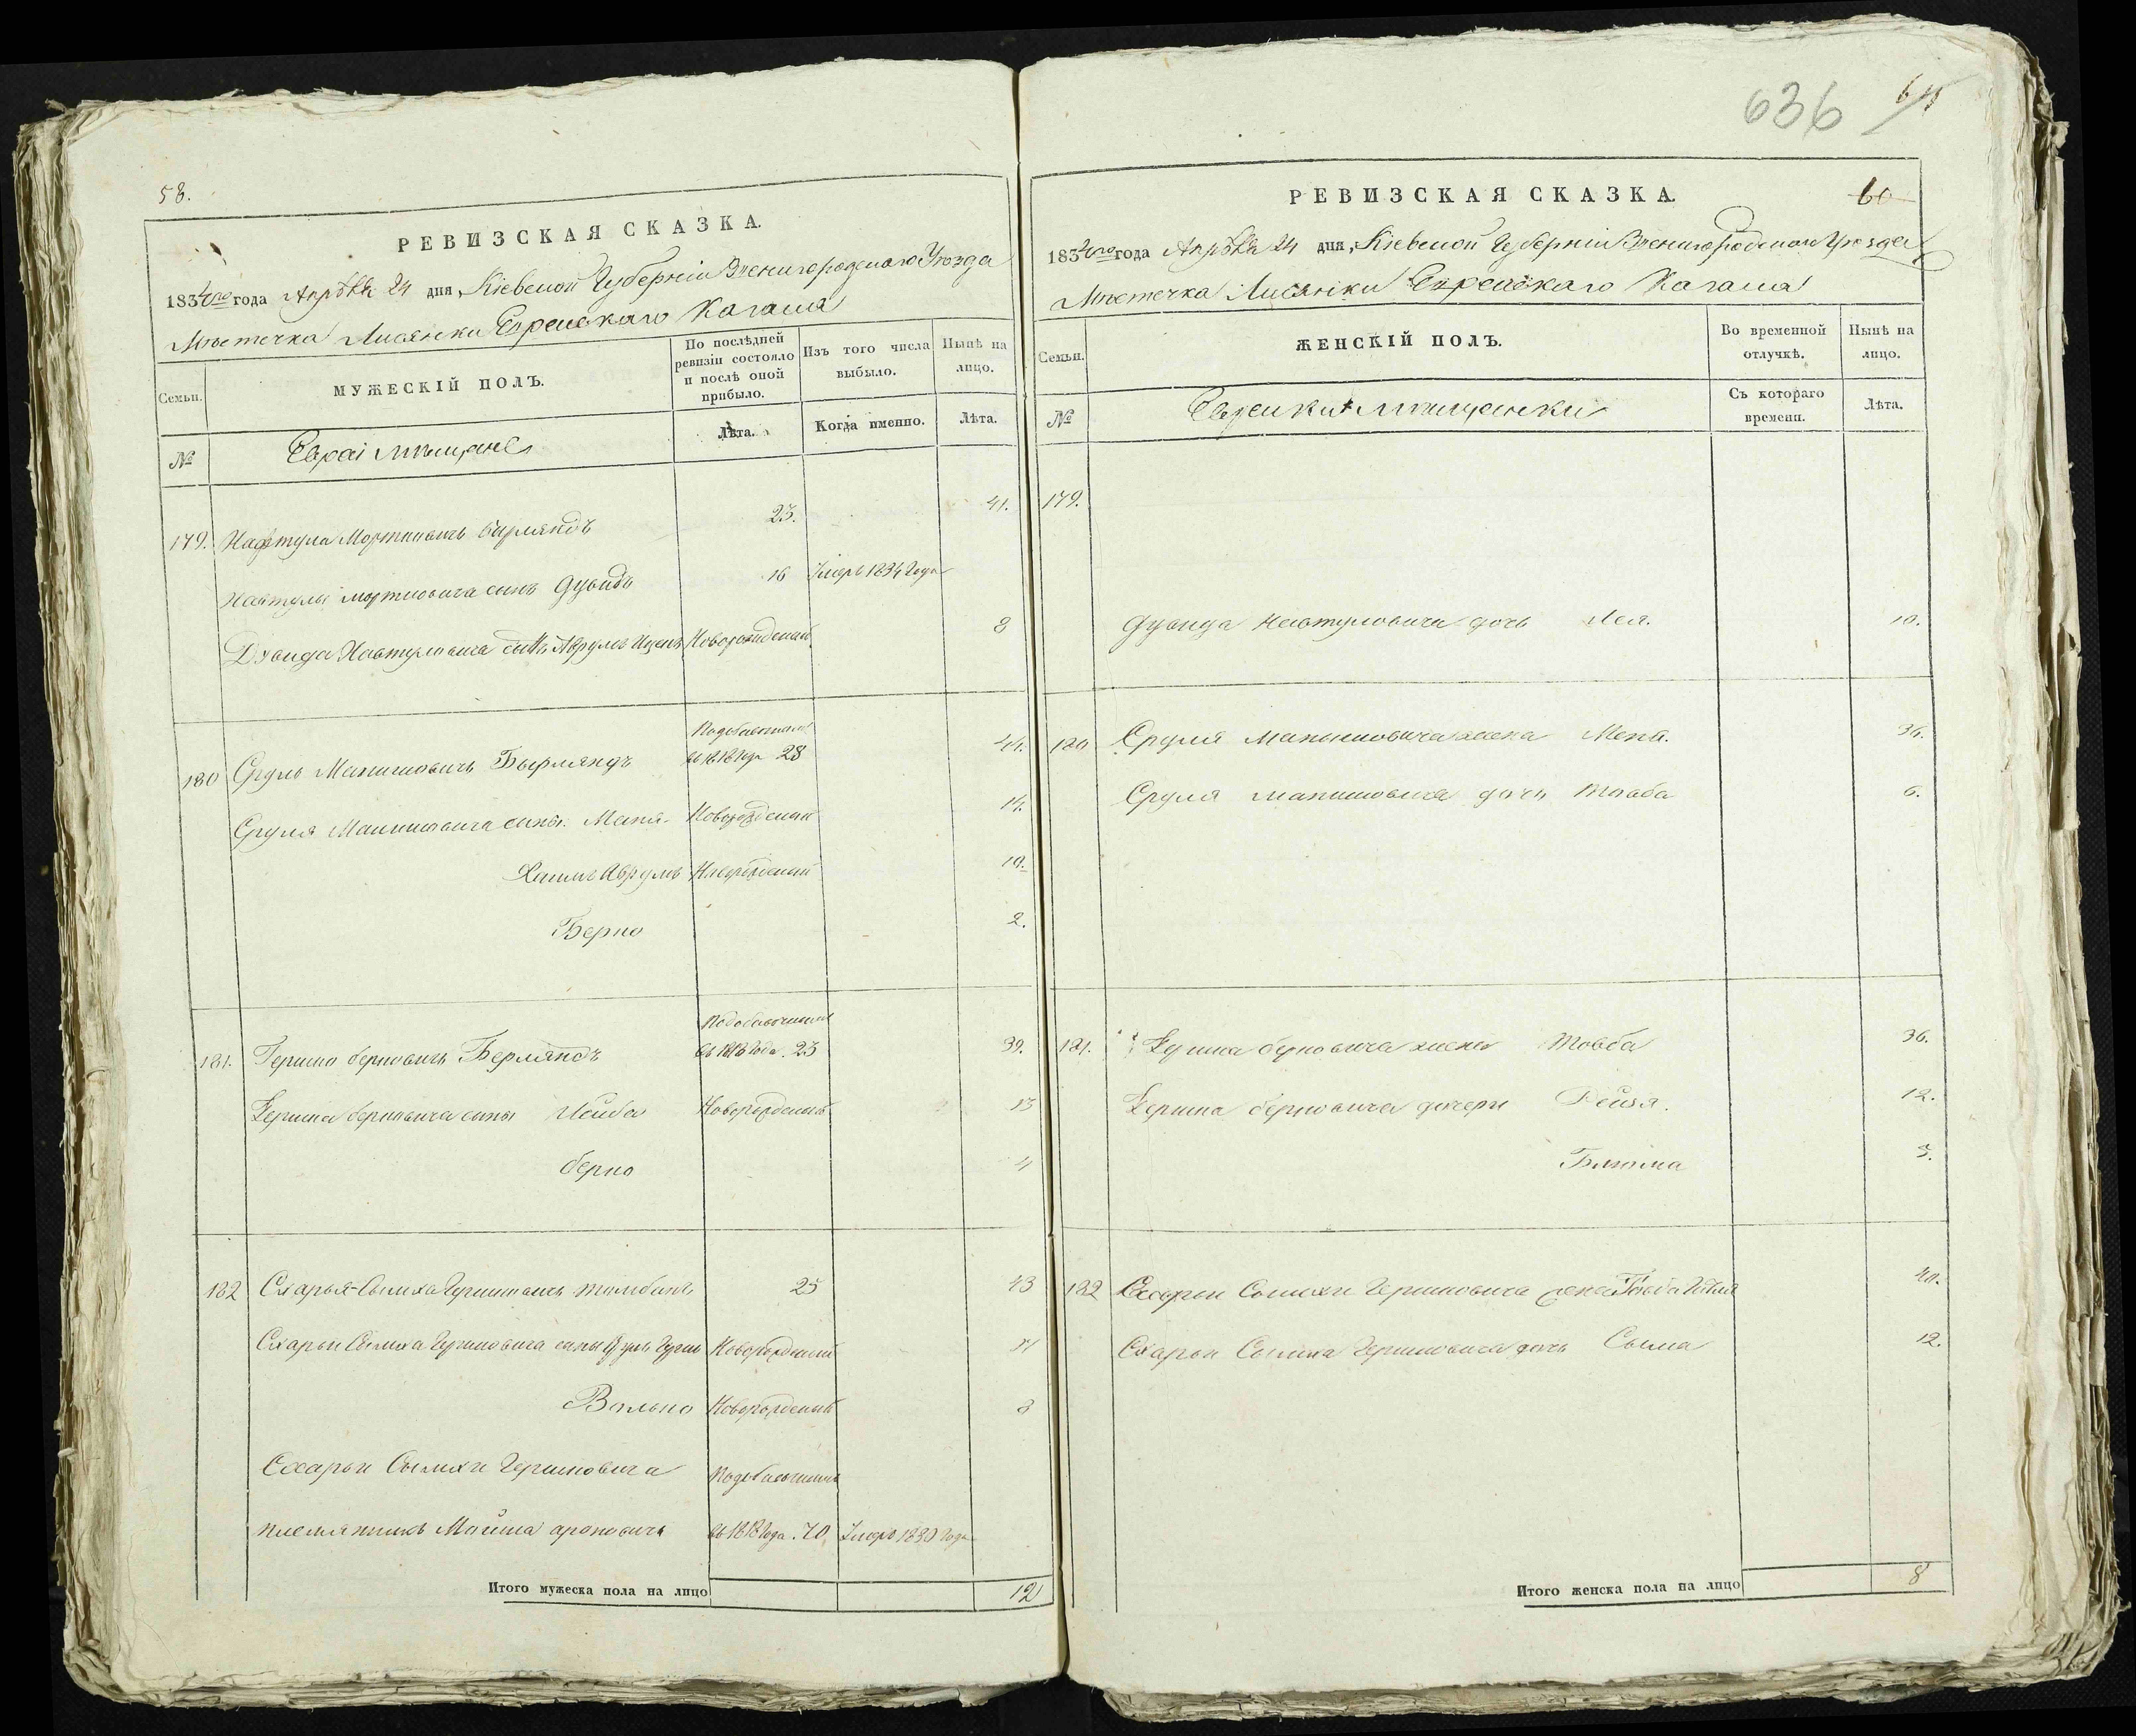 636
58.
РЕВИЗСКАЯ СКАЗКА.
1834го года Апреля 24 дня, Кіевской Губерніи Звенигородскаго Уезда
Местечка Лисянки Еврейскаго Кагала
Семьи.
МУЖЕСКІЙ ПОЛЪ.
По послѣдней ревизіи состояло и послѣ оной прибыло.
Изъ того числа выбыло.
Нынѣ на лицо.
№
Евреи мещане
Лѣта.
Когда именно.
Лѣта.
179. Нафтула Мортковичъ Бырляндъ 23. 41.
Навтулы Мортковича сынъ Дувидъ 16 Умеръ 1834 Года
Дувида Навтуловича сынъ Аврумъ Ицекъ Новорожденый 8
Подобавочныи
180 Сруль Манишовичъ Бырляндъ въ 1818 году 28 44.
Сруля Манишовича сыны. Маня. Новорожденый 14.
Хаимъ Аврумъ Новорожденый 10.
Берко 2.
Подобавочныи
181. Гершко берковичъ Берляндъ въ 1818 года. 23 39.
Гершка берковича сыны Лейба Новорожденый 13
берко 4
182 Схарья-Сымха Гершковичъ 25 43
Схарьи Сымха Гершковича сыны Сруль Новорожденый
Волько Новорожденый 8
Схарьи Сымхи Гершковича Подобавочныи
племянникъ Мойша ароновичъ въ 1818 года. 70 Умеръ 1830 Года
Итого мужеска пола на лицо 12
РЕВИЗСКАЯ СКАЗКА. 60
1834го года Апреля 24 дня, Кіевской Губерніи Звенигородскаго Уезда
Местечка Лисянки Еврейскаго Кагала
Семьи.
ЖЕНСКІЙ ПОЛЪ.
Во временной отлучкѣ.
Нынѣ на лицо.
№
Еврейки мещанки
Съ котораго времени.
Лѣта.
179.
Дувида Навтуловича дочь Лея. 10.
180 Сруля Манишовича жена 36.
Сруля Манишовича дочь Товба 6.
181. Гершка берковича жена Товба 36.
Гершка берковича дочери Рейзя. 12.
Блюма 3.
182 Схарьи Сымхи Гершковича жена 40.
Схарьи Сымха Гершковича дочь Сыма 12.
Итого женска пола на лицо 8